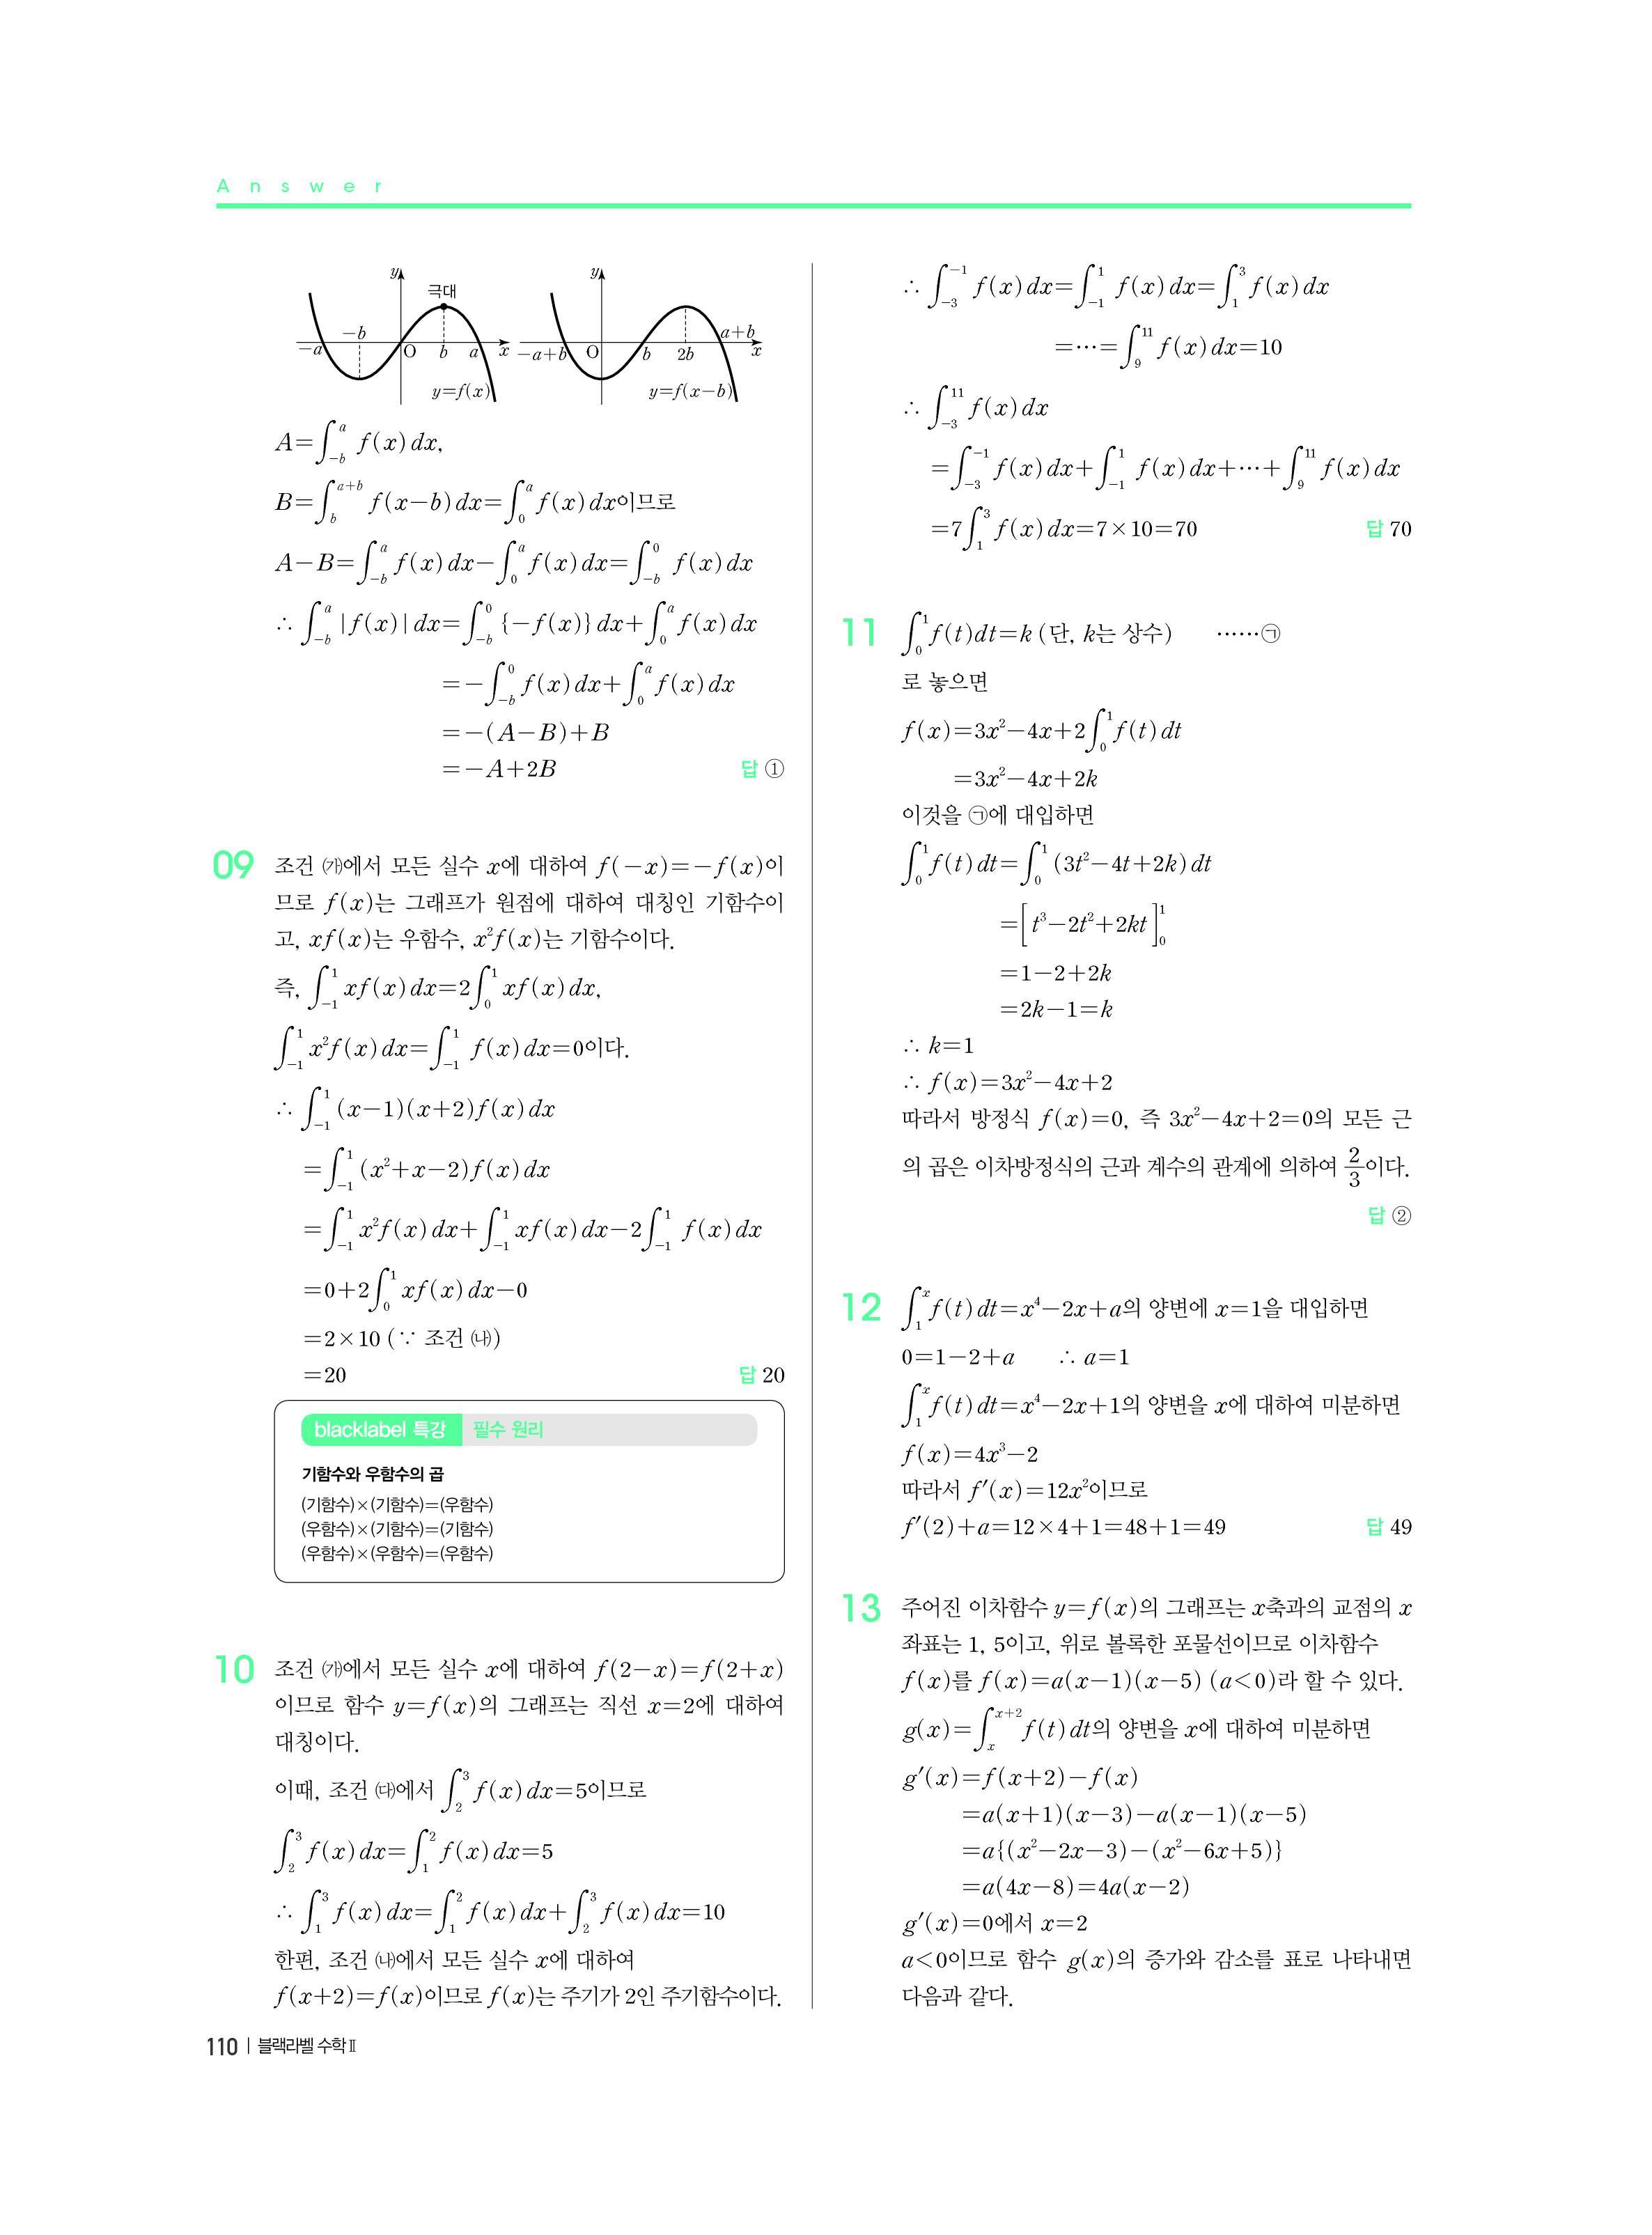 Answer
y
극대
−b
−a
O
b
a
x
y=f(x)
y
a+b
−a+b
O
b
2b
x
y=f(x−b)
A=∫_{−b}^{a} f(x)dx,
B=∫_{b}^{a+b} f(x−b)dx=∫_{0}^{a} f(x)dx이므로
A−B=∫_{−b}^{a} f(x)dx−∫_{0}^{a} f(x)dx=∫_{−b}^{0} f(x)dx
∴ ∫_{−b}^{a} |f(x)|dx=∫_{−b}^{0} {−f(x)}dx+∫_{0}^{a} f(x)dx
=−∫_{−b}^{0} f(x)dx+∫_{0}^{a} f(x)dx
=−(A−B)+B
=−A+2B 답 ①
09 조건 ㈎에서 모든 실수 x에 대하여 f(−x)=−f(x)이
므로 f(x)는 그래프가 원점에 대하여 대칭인 기함수이
고, xf(x)는 우함수, x²f(x)는 기함수이다.
즉, ∫_{−1}^{1} xf(x)dx=2∫_{0}^{1} xf(x)dx,
∫_{−1}^{1} x²f(x)dx=∫_{−1}^{1} f(x)dx=0이다.
∴ ∫_{−1}^{1} (x−1)(x+2)f(x)dx
=∫_{−1}^{1} (x²+x−2)f(x)dx
=∫_{−1}^{1} x²f(x)dx+∫_{−1}^{1} xf(x)dx−2∫_{−1}^{1} f(x)dx
=0+2∫_{0}^{1} xf(x)dx−0
=2×10 (∵ 조건 ㈏)
=20 답 20
blacklabel 특강 필수 원리
기함수와 우함수의 곱
(기함수)×(기함수)=(우함수)
(우함수)×(기함수)=(기함수)
(우함수)×(우함수)=(우함수)
10 조건 ㈎에서 모든 실수 x에 대하여 f(2−x)=f(2+x)
이므로 함수 y=f(x)의 그래프는 직선 x=2에 대하여
대칭이다.
이때, 조건 ㈐에서 ∫_{2}^{3} f(x)dx=5이므로
∫_{2}^{3} f(x)dx=∫_{1}^{2} f(x)dx=5
∴ ∫_{1}^{3} f(x)dx=∫_{1}^{2} f(x)dx+∫_{2}^{3} f(x)dx=10
한편, 조건 ㈏에서 모든 실수 x에 대하여
f(x+2)=f(x)이므로 f(x)는 주기가 2인 주기함수이다.
∴ ∫_{−3}^{−1} f(x)dx=∫_{−1}^{1} f(x)dx=∫_{1}^{3} f(x)dx
=⋯=∫_{9}^{11} f(x)dx=10
∴ ∫_{−3}^{11} f(x)dx
=∫_{−3}^{−1} f(x)dx+∫_{−1}^{1} f(x)dx+⋯+∫_{9}^{11} f(x)dx
=7∫_{1}^{3} f(x)dx=7×10=70 답 70
11 ∫_{0}^{1} f(t)dt=k (단, k는 상수) ⋯⋯㉠
로 놓으면
f(x)=3x²−4x+2∫_{0}^{1} f(t)dt
=3x²−4x+2k
이것을 ㉠에 대입하면
∫_{0}^{1} f(t)dt=∫_{0}^{1} (3t²−4t+2k)dt
=[t³−2t²+2kt]_{0}^{1}
=1−2+2k
=2k−1=k
∴ k=1
∴ f(x)=3x²−4x+2
따라서 방정식 f(x)=0, 즉 3x²−4x+2=0의 모든 근
의 곱은 이차방정식의 근과 계수의 관계에 의하여 2/3이다.
답 ②
12 ∫_{1}^{x} f(t)dt=x⁴−2x+a의 양변에 x=1을 대입하면
0=1−2+a ∴ a=1
∫_{1}^{x} f(t)dt=x⁴−2x+1의 양변을 x에 대하여 미분하면
f(x)=4x³−2
따라서 f′(x)=12x²이므로
f′(2)+a=12×4+1=48+1=49 답 49
13 주어진 이차함수 y=f(x)의 그래프는 x축과의 교점의 x
좌표는 1, 5이고, 위로 볼록한 포물선이므로 이차함수
f(x)를 f(x)=a(x−1)(x−5) (a<0)라 할 수 있다.
g(x)=∫_{x}^{x+2} f(t)dt의 양변을 x에 대하여 미분하면
g′(x)=f(x+2)−f(x)
=a(x+1)(x−3)−a(x−1)(x−5)
=a{(x²−2x−3)−(x²−6x+5)}
=a(4x−8)=4a(x−2)
g′(x)=0에서 x=2
a<0이므로 함수 g(x)의 증가와 감소를 표로 나타내면
다음과 같다.
110 | 블랙라벨 수학Ⅱ